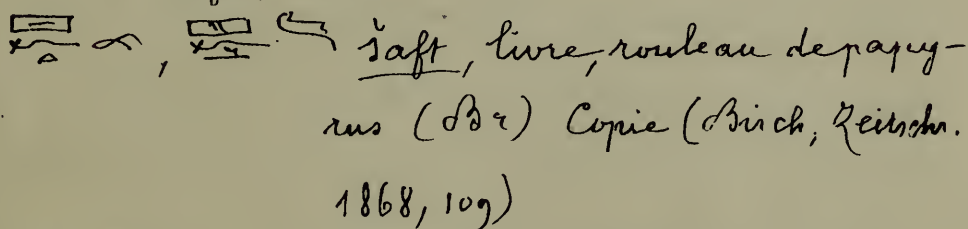 , šaft, livre, rouleau de papy-
rus (Br) Copie (Birch, Zeitschr.
1868, 109)